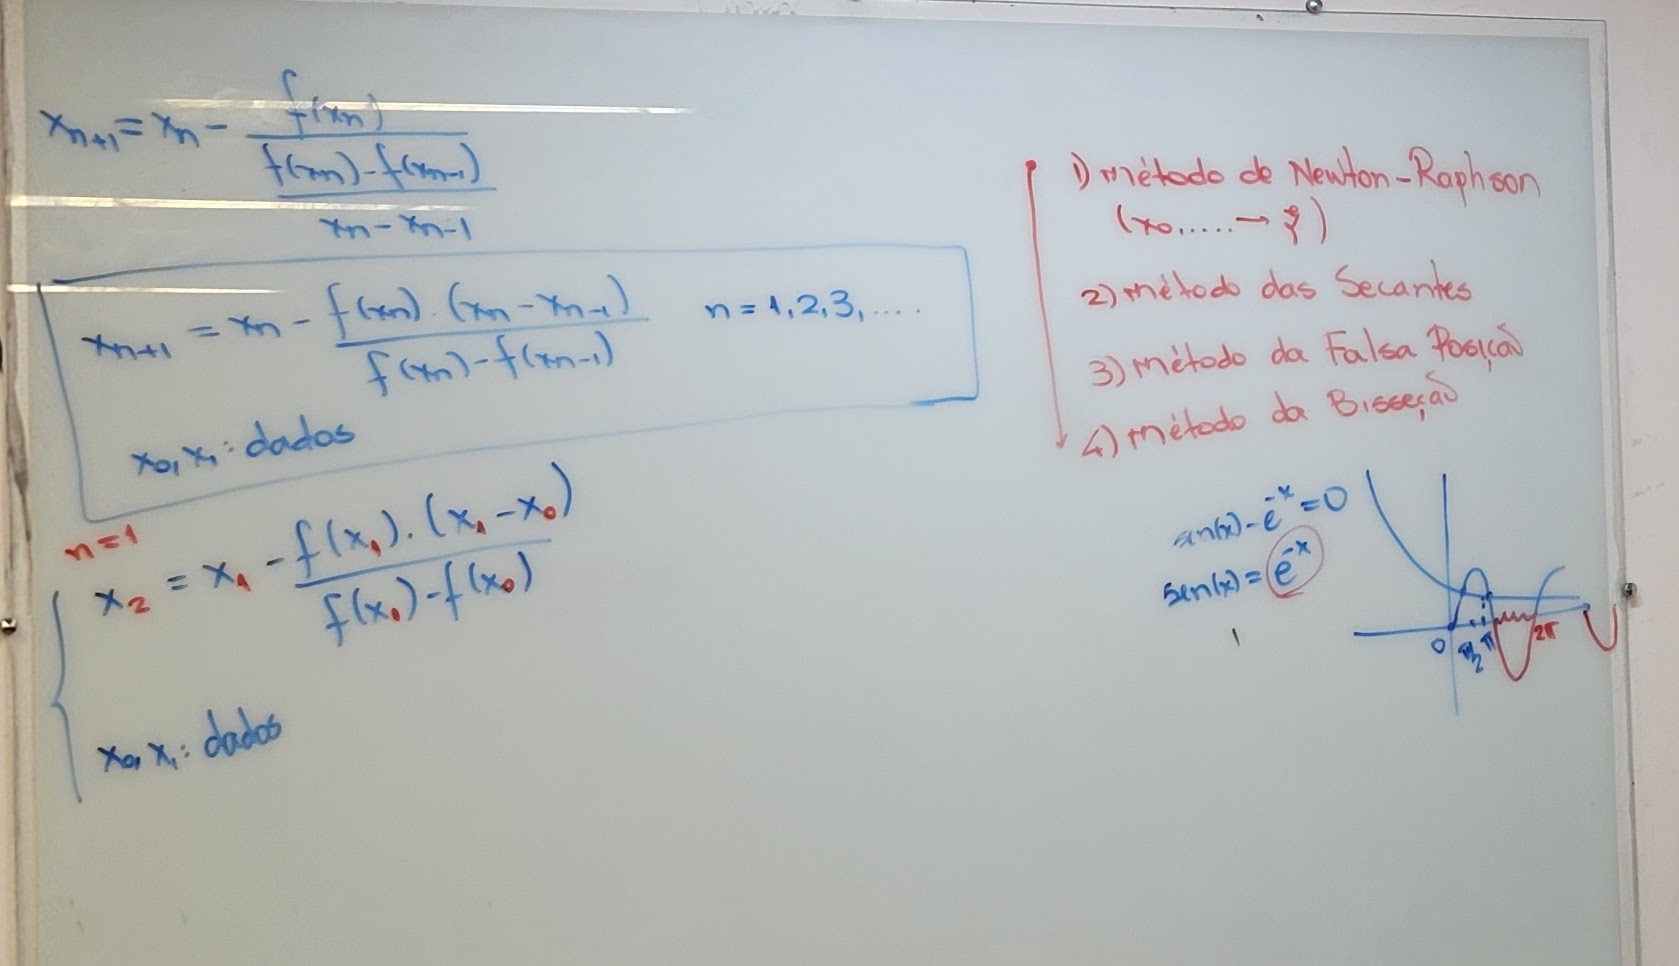 x_{n+1} = x_n - \frac{f(x_n)}{\frac{f(x_n) - f(x_{n-1})}{x_n - x_{n-1}}}
x_{n+1} = x_n - \frac{f(x_n) . (x_n - x_{n-1})}{f(x_n) - f(x_{n-1})} n = 1, 2, 3, ....
x_0, x_1 : dados
n = 1
x_2 = x_1 - \frac{f(x_1) . (x_1 - x_0)}{f(x_1) - f(x_0)}
x_0, x_1 : dados
1) método de Newton-Raphson
(x_0, ..... → ξ)
2) método das Secantes
3) método da Falsa Posição
4) método da Bisseção
sen(x) - e^{-x} = 0
sen(x) = e^{-x}
0 π/2 π 2π